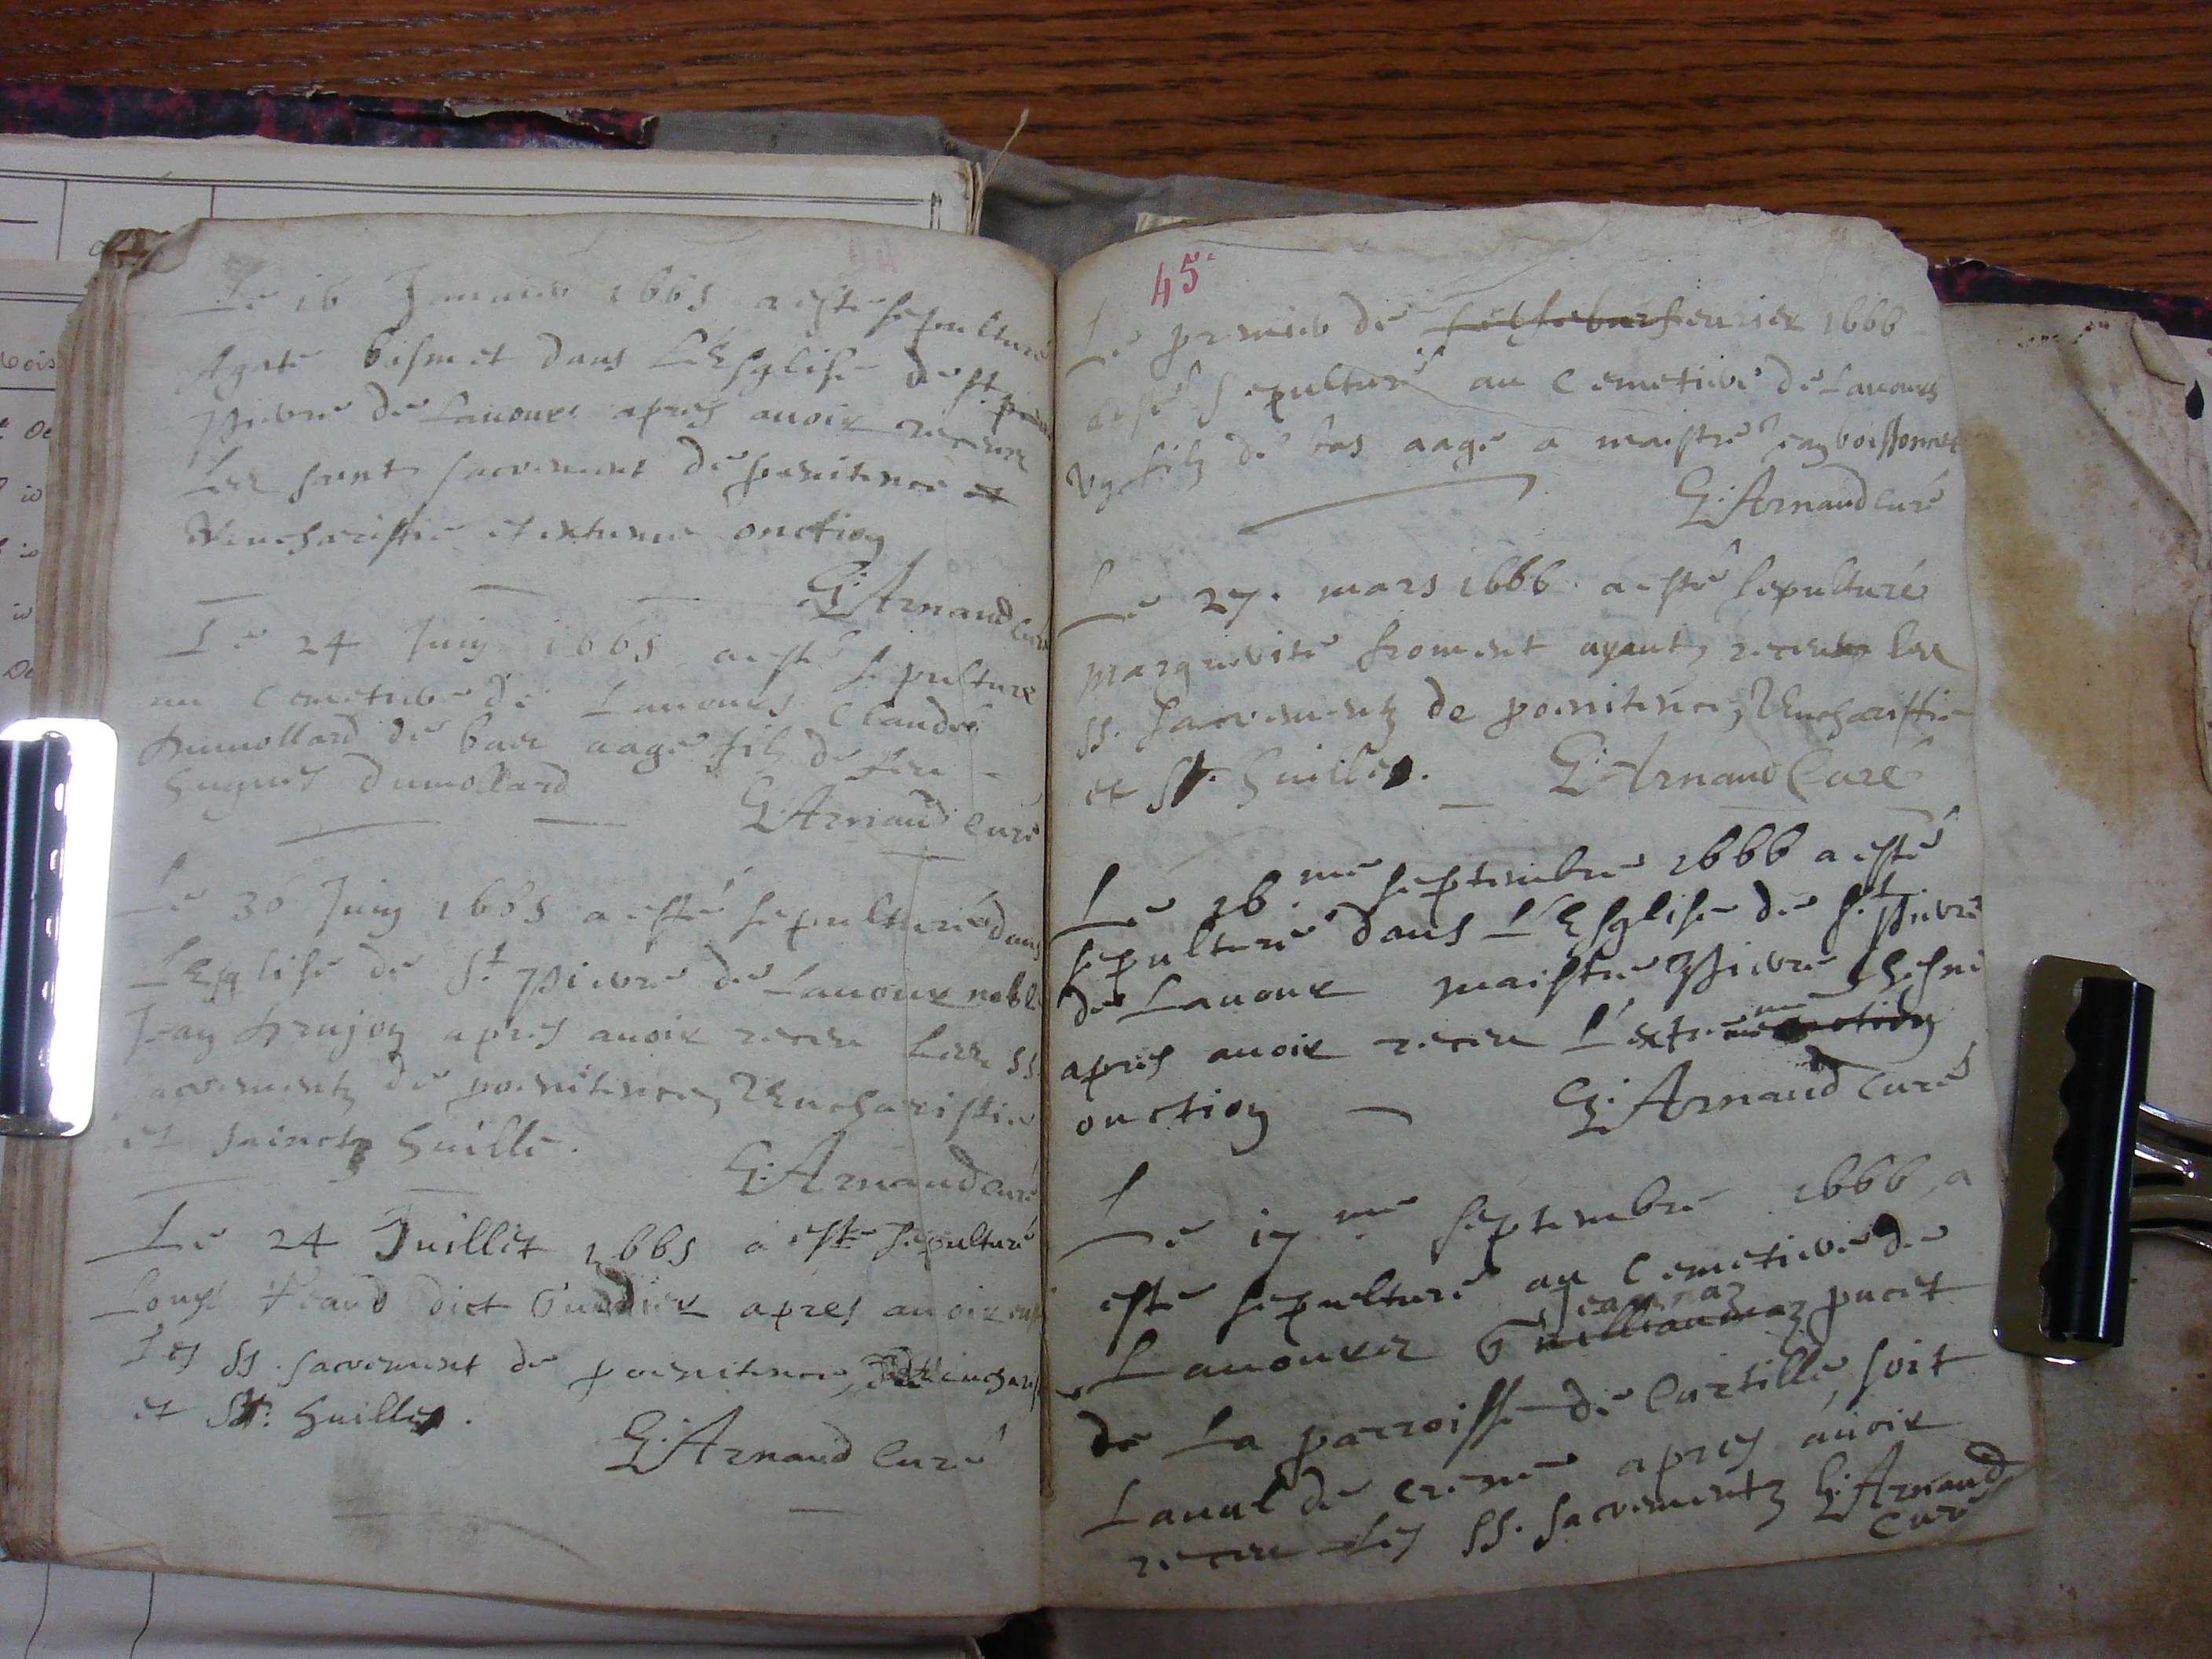 Le 16 Januier 1665 a esté sepulturé
Agate bismet dans L'Esglise de St
pierre de Lauours apres auoir receu
Les saint sacrement de penitence et
Eucharistie et extreme onction
G: Arnaud Curé
Le 24 Juin 1665 a esté sepulturé
au Cemetiere de Lauours Claude
dumollard de bas aage fils de feu
hugues dumollard
G: Arnaud Curé
Le 30 Juin 1665 a esté sepulturé dans
L'Esglise de St pierre de Lauour noble
Jean drujon apres auoir receu Les SS.
sacrementz de poenitence, Eucharistie
et saincte huille.
G: Arnaud Curé
Le 24 Juillet 1665 a esté sepulturé
Louys dict apres auoir
Les SS. sacrement de poenitence,
et St. huilles.
G: Arnaud Curé
45
Le premier de feurier 1666
a esté sepulturé au Cemetiere de Lauours
un filz de bas aage a maistre Jean boissonnet
G: Arnaud Curé
Le 27. mars 1666 a esté sepulturé
marguerite froment ayant receu les
SS. sacrementz de poenitence, Eucharistie
et St. huilles. G: Arnaud Curé
Le 16.me septembre 1666 a esté
sepulturé dans L'Esglise de St pierre
de Lauour maistre pierre
apres auoir receu L'extreme onction
onction G: Arnaud Curé
Le 17me septembre 1666 a
esté sepulturé au Cemetiere de
Lauours pucet
de La parroisse de Curtille, soit
Laual de crene apres auoir
receu Les SS. sacrementz G: Arnaud
Curé